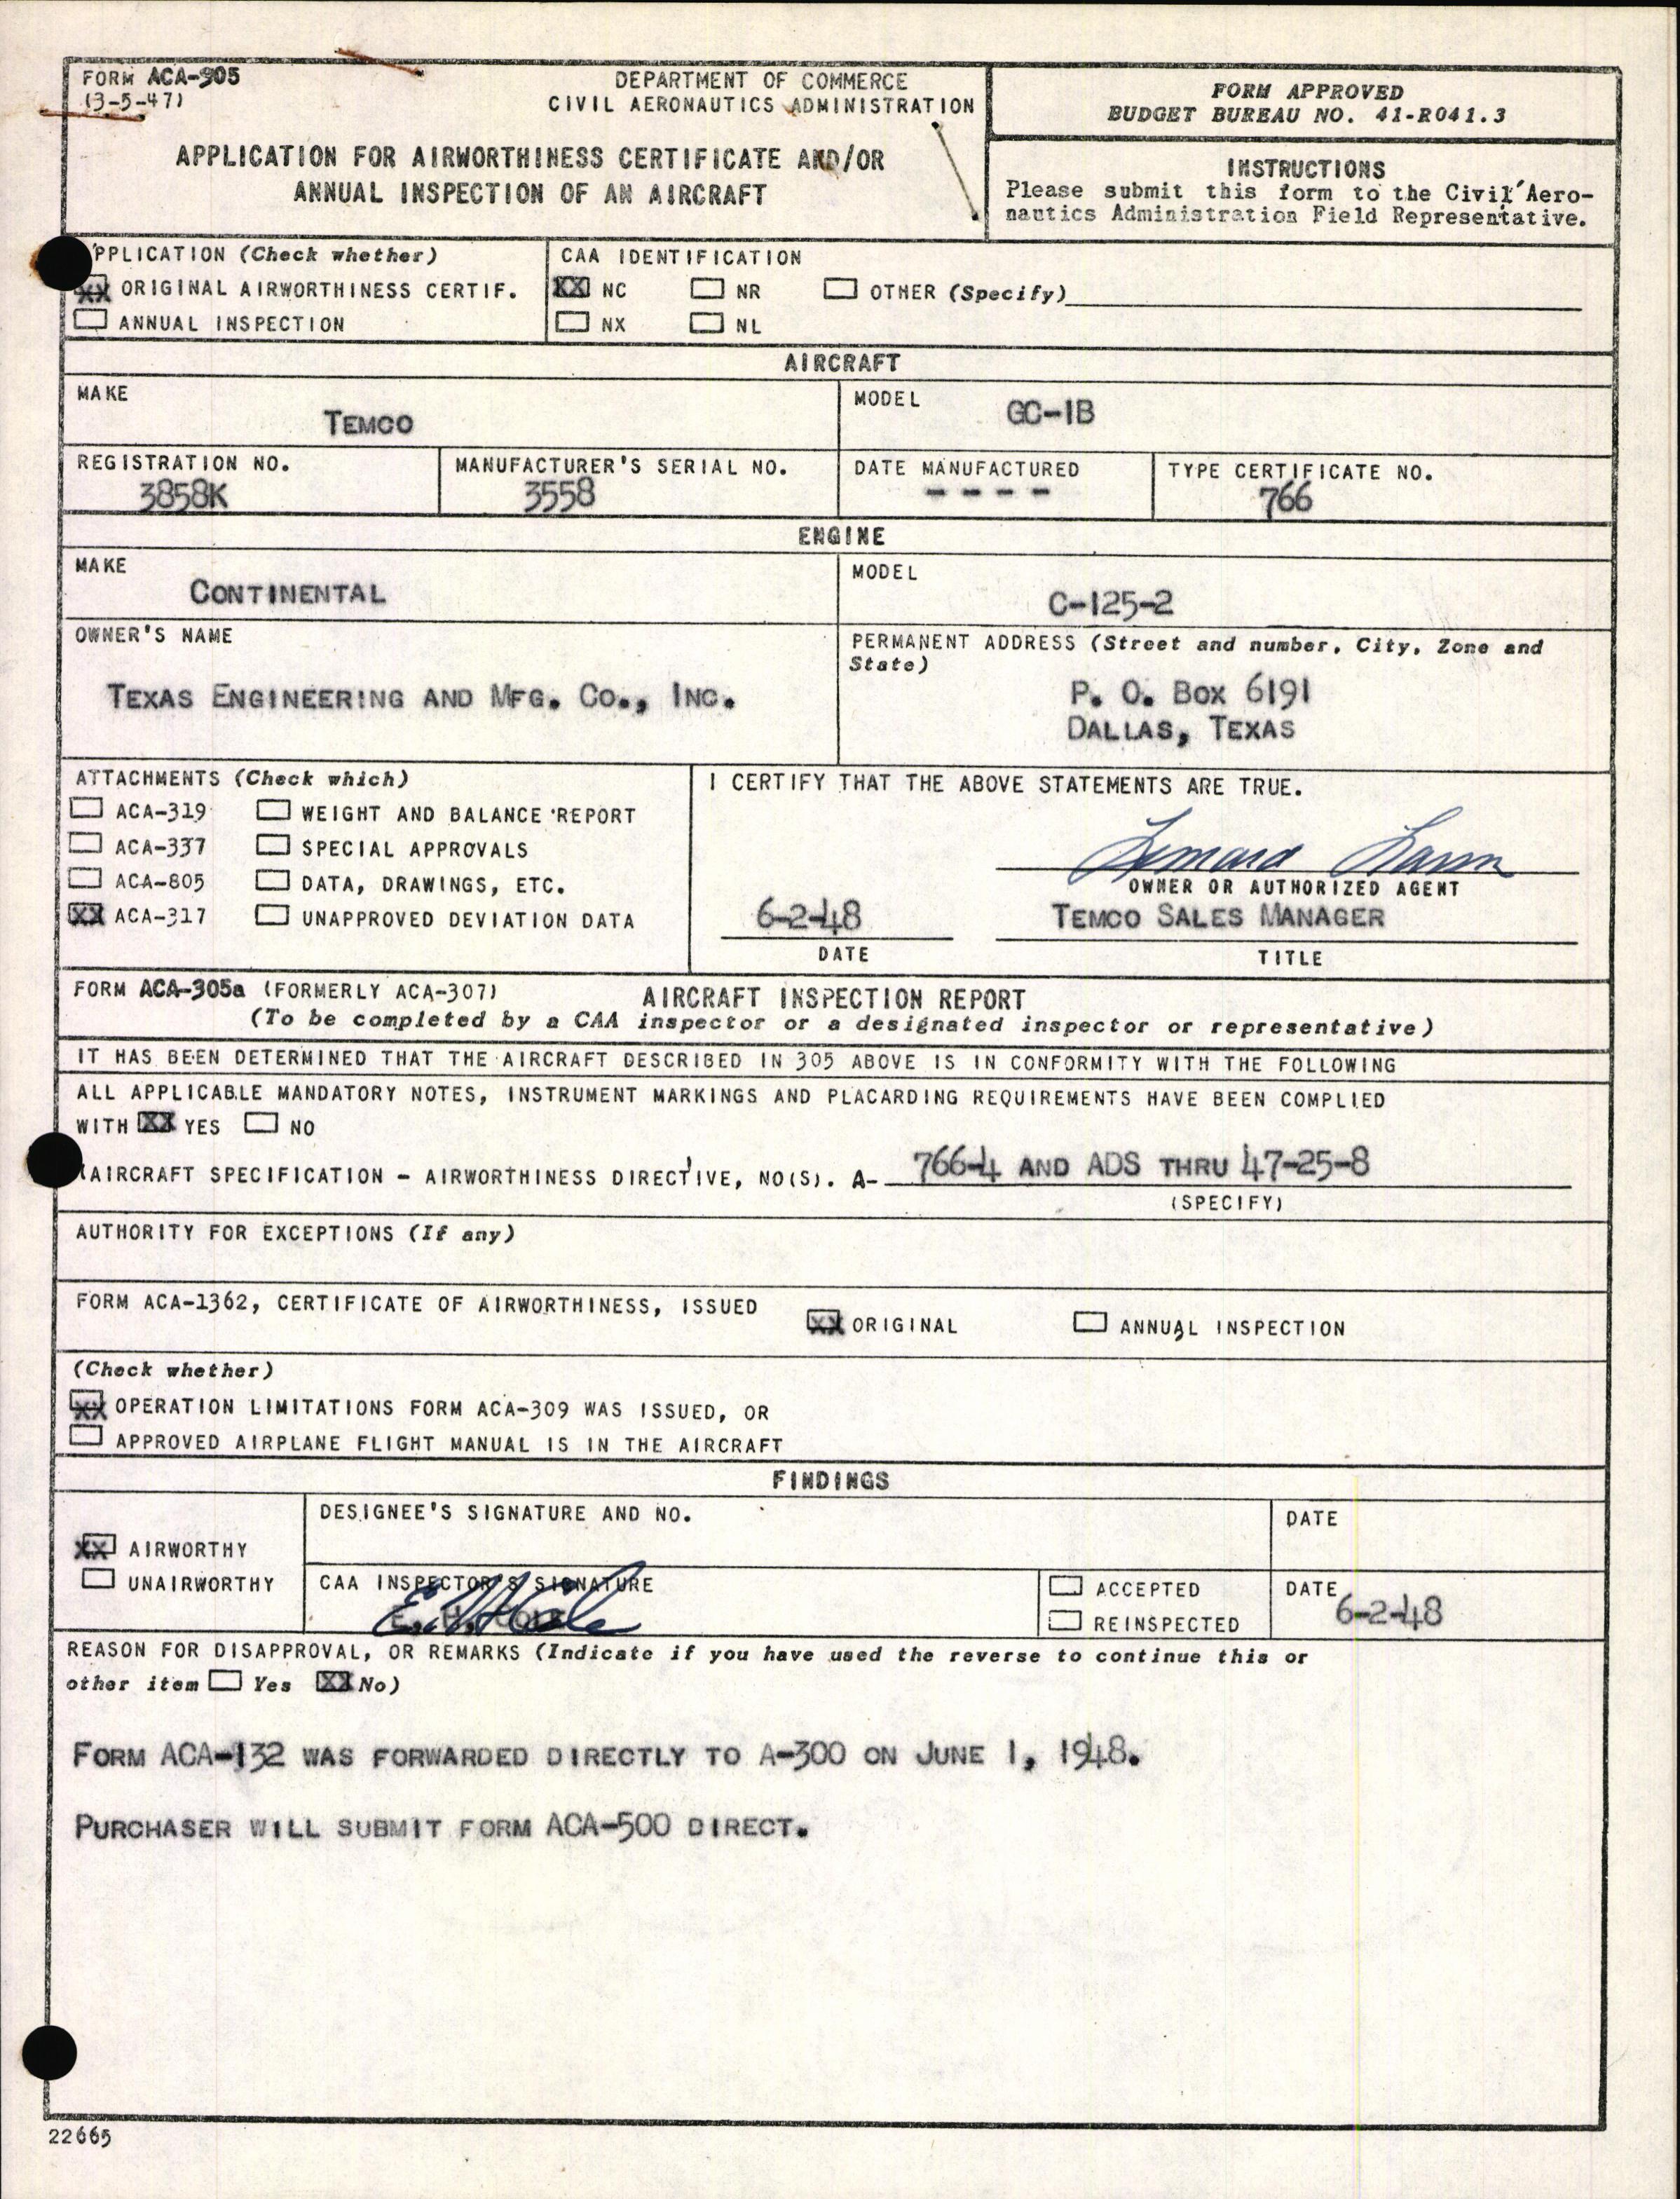 FORM ACA-305
(3-5-47)
DEPARTMENT OF COMMERCE
CIVIL AERONAUTICS ADMINISTRATION
APPLICATION FOR AIRWORTHINESS CERTIFICATE AND/OR
ANNUAL INSPECTION OF AN AIRCRAFT
FORM APPROVED
BUDGET BUREAU NO. 41-R041.3
INSTRUCTIONS
Please submit this form to the Civil Aero-
nautics Administration Field Representative.
PPLICATION (Check whether)
XX ORIGINAL AIRWORTHINESS CERTIF.
ANNUAL INSPECTION
CAA IDENTIFICATION
XX NC NR OTHER (Specify)
NX NL
AIRCRAFT
MAKE
TEMCO
MODEL
GC-1B
REGISTRATION NO.
3858K
MANUFACTURER'S SERIAL NO.
3558
DATE MANUFACTURED
- - - -
TYPE CERTIFICATE NO.
766
ENGINE
MAKE
CONTINENTAL
MODEL
C-125-2
OWNER'S NAME
TEXAS ENGINEERING AND MFG. CO., INC.
PERMANENT ADDRESS (Street and number, City, Zone and
State)
P. O. BOX 6191
DALLAS, TEXAS
ATTACHMENTS (Check which)
ACA-319 WEIGHT AND BALANCE REPORT
ACA-337 SPECIAL APPROVALS
ACA-805 DATA, DRAWINGS, ETC.
XX ACA-317 UNAPPROVED DEVIATION DATA
I CERTIFY THAT THE ABOVE STATEMENTS ARE TRUE.
OWNER OR AUTHORIZED AGENT
6-2-48
DATE
TEMCO SALES MANAGER
TITLE
FORM ACA-305a (FORMERLY ACA-307)
AIRCRAFT INSPECTION REPORT
(To be completed by a CAA inspector or a designated inspector or representative)
IT HAS BEEN DETERMINED THAT THE AIRCRAFT DESCRIBED IN 305 ABOVE IS IN CONFORMITY WITH THE FOLLOWING
ALL APPLICABLE MANDATORY NOTES, INSTRUMENT MARKINGS AND PLACARDING REQUIREMENTS HAVE BEEN COMPLIED
WITH XX YES NO
(AIRCRAFT SPECIFICATION - AIRWORTHINESS DIRECTIVE, NO(S). A- 766-4 AND ADS THRU 47-25-8
(SPECIFY)
AUTHORITY FOR EXCEPTIONS (If any)
FORM ACA-1362, CERTIFICATE OF AIRWORTHINESS, ISSUED
XX ORIGINAL ANNUAL INSPECTION
(Check whether)
XX OPERATION LIMITATIONS FORM ACA-309 WAS ISSUED, OR
APPROVED AIRPLANE FLIGHT MANUAL IS IN THE AIRCRAFT
FINDINGS
XX AIRWORTHY
UNAIRWORTHY
DESIGNEE'S SIGNATURE AND NO.
DATE
CAA INSPECTOR'S SIGNATURE
E. H. COLE
ACCEPTED
REINSPECTED
DATE
6-2-48
REASON FOR DISAPPROVAL, OR REMARKS (Indicate if you have used the reverse to continue this or
other item Yes XX No)
FORM ACA-132 WAS FORWARDED DIRECTLY TO A-300 ON JUNE 1, 1948.
PURCHASER WILL SUBMIT FORM ACA-500 DIRECT.
22665